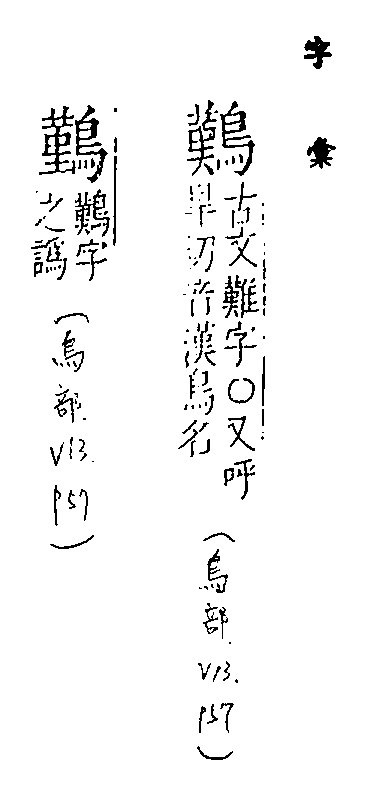 字彙
鷬古文難字○又呼
旱切音漢鳥名
（鳥部．V13．P57）
鷬字
之譌
（鳥部．V13．P57）